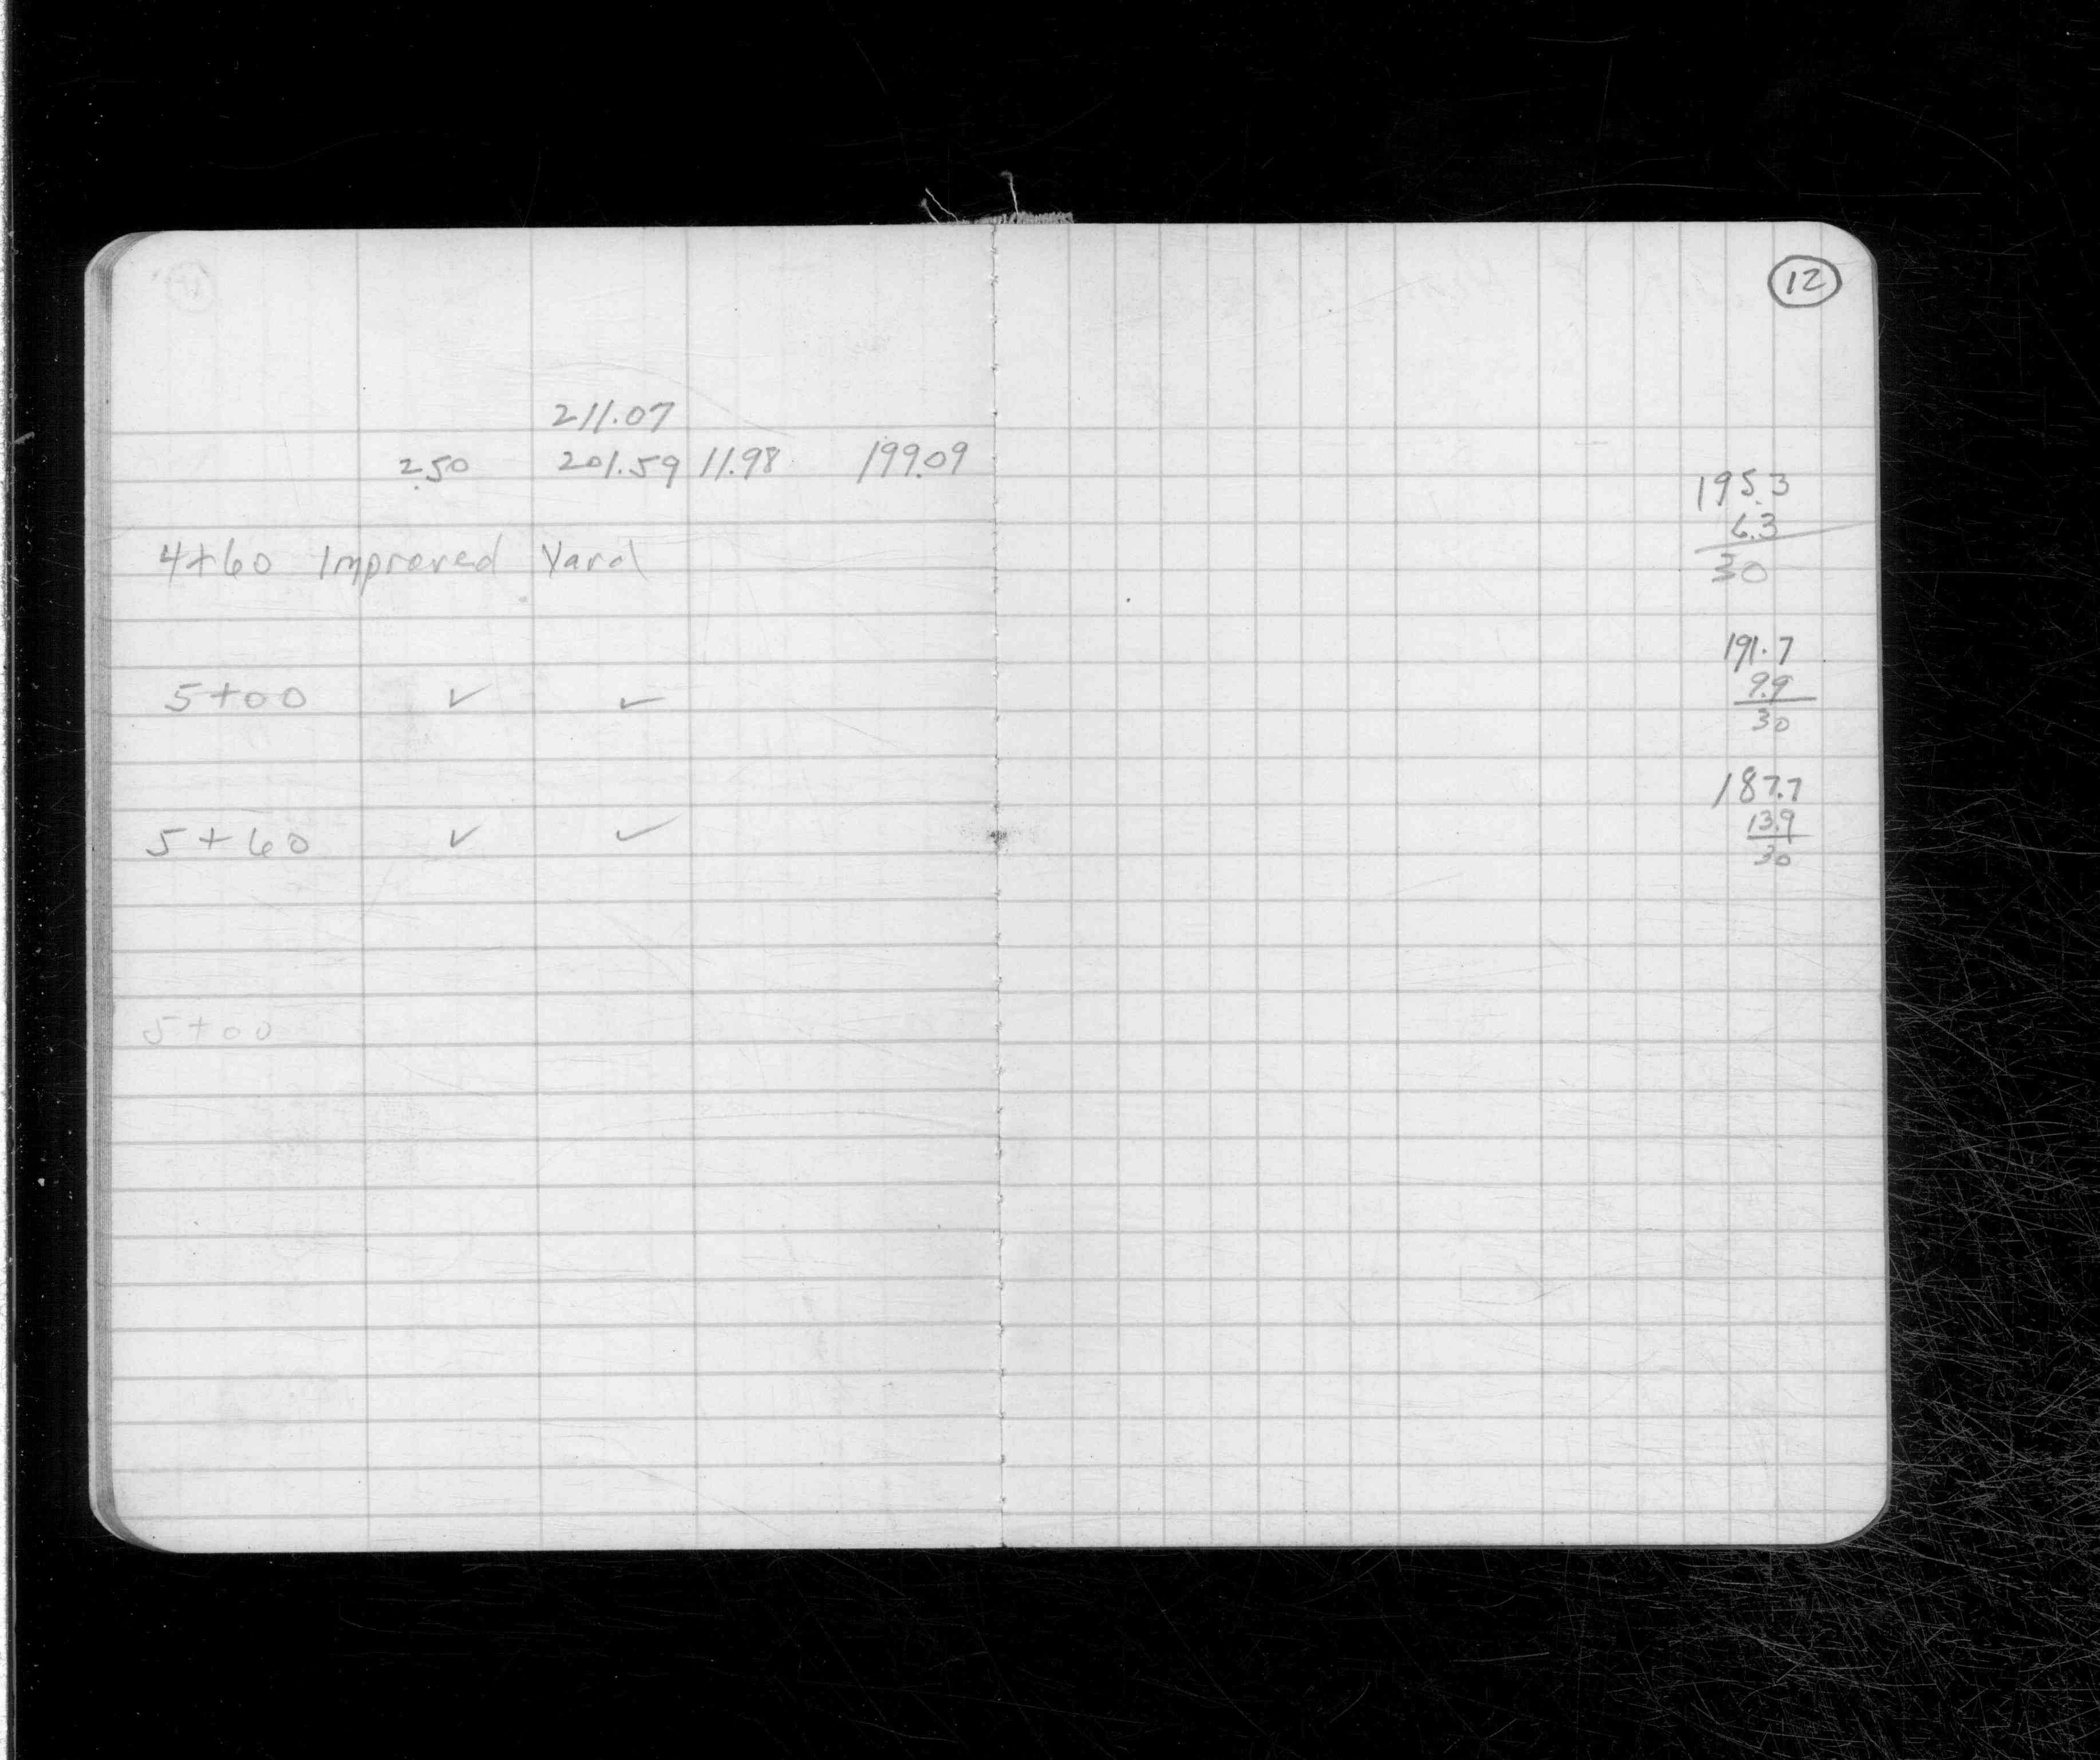 12
211.07
2.50 201.59 11.98 199.09
195.3
6.3
30
4+60 Improved Yard
191.7
9.9
30
5+00 ✓ ✓
187.7
13.9
30
5+60 ✓ ✓
5+00